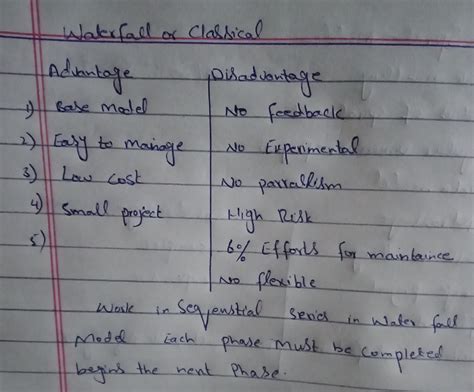 Waterfall or Classical
Advantage Disadvantage
1) Base model No feedback
2) Easy to manage No Experimental
3) Low cost No parrallism
4) Small project High Risk
5) 6% Efforts for maintaince
No flexible
Work in Seqenstial series in Water fall
Model Each phase must be completed
begins the next Phase.